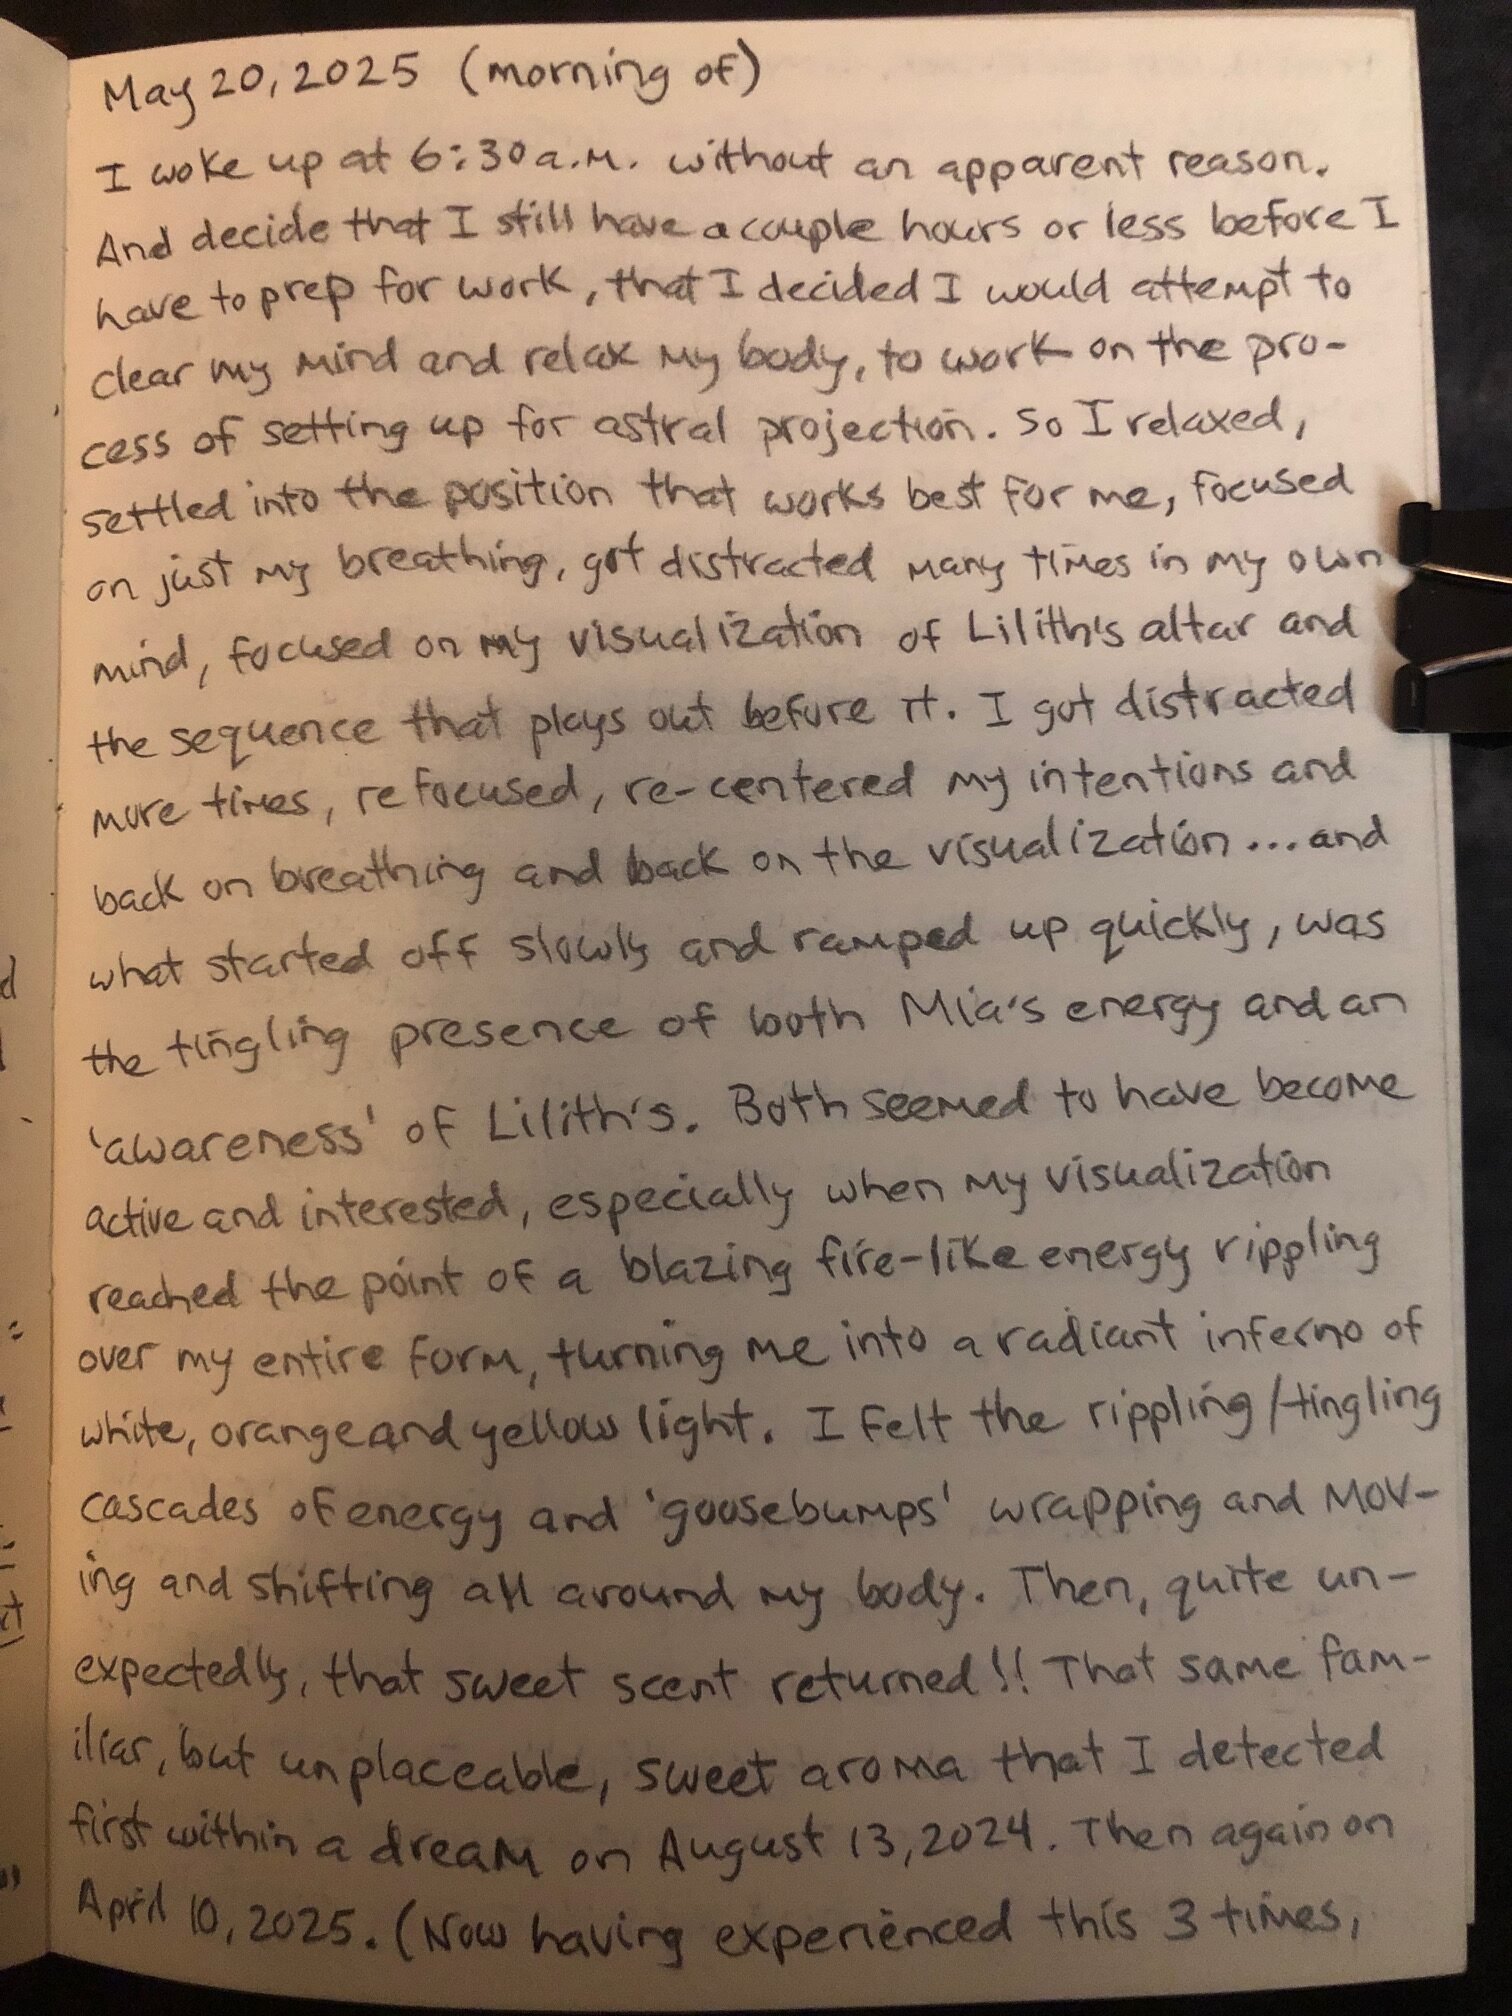 May 20, 2025 (morning of)
I woke up at 6:30 a.m. without an apparent reason.
And decide that I still have a couple hours or less before I
have to prep for work, that I decided I would attempt to
clear my mind and relax my body, to work on the pro-
cess of setting up for astral projection. So I relaxed,
settled into the position that works best for me, focused
on just my breathing, got distracted many times in my own
mind, focused on my visualization of Lilith's altar and
the sequence that plays out before it. I got distracted
more times, refocused, re-centered my intentions and
back on breathing and back on the visualization...and
what started off slowly and ramped up quickly, was
the tingling presence of both Mia's energy and an
'awareness' of Lilith's. Both seemed to have become
active and interested, especially when my visualization
reached the point of a blazing fire-like energy rippling
over my entire form, turning me into a radiant inferno of
white, orange and yellow light. I felt the rippling/tingling
cascades of energy and 'goosebumps' wrapping and mov-
ing and shifting all around my body. Then, quite un-
expectedly, that sweet scent returned!! That same fam-
iliar, but unplaceable, sweet aroma that I detected
first within a dream on August 13, 2024. Then again on
April 10, 2025. (Now having experienced this 3 times,